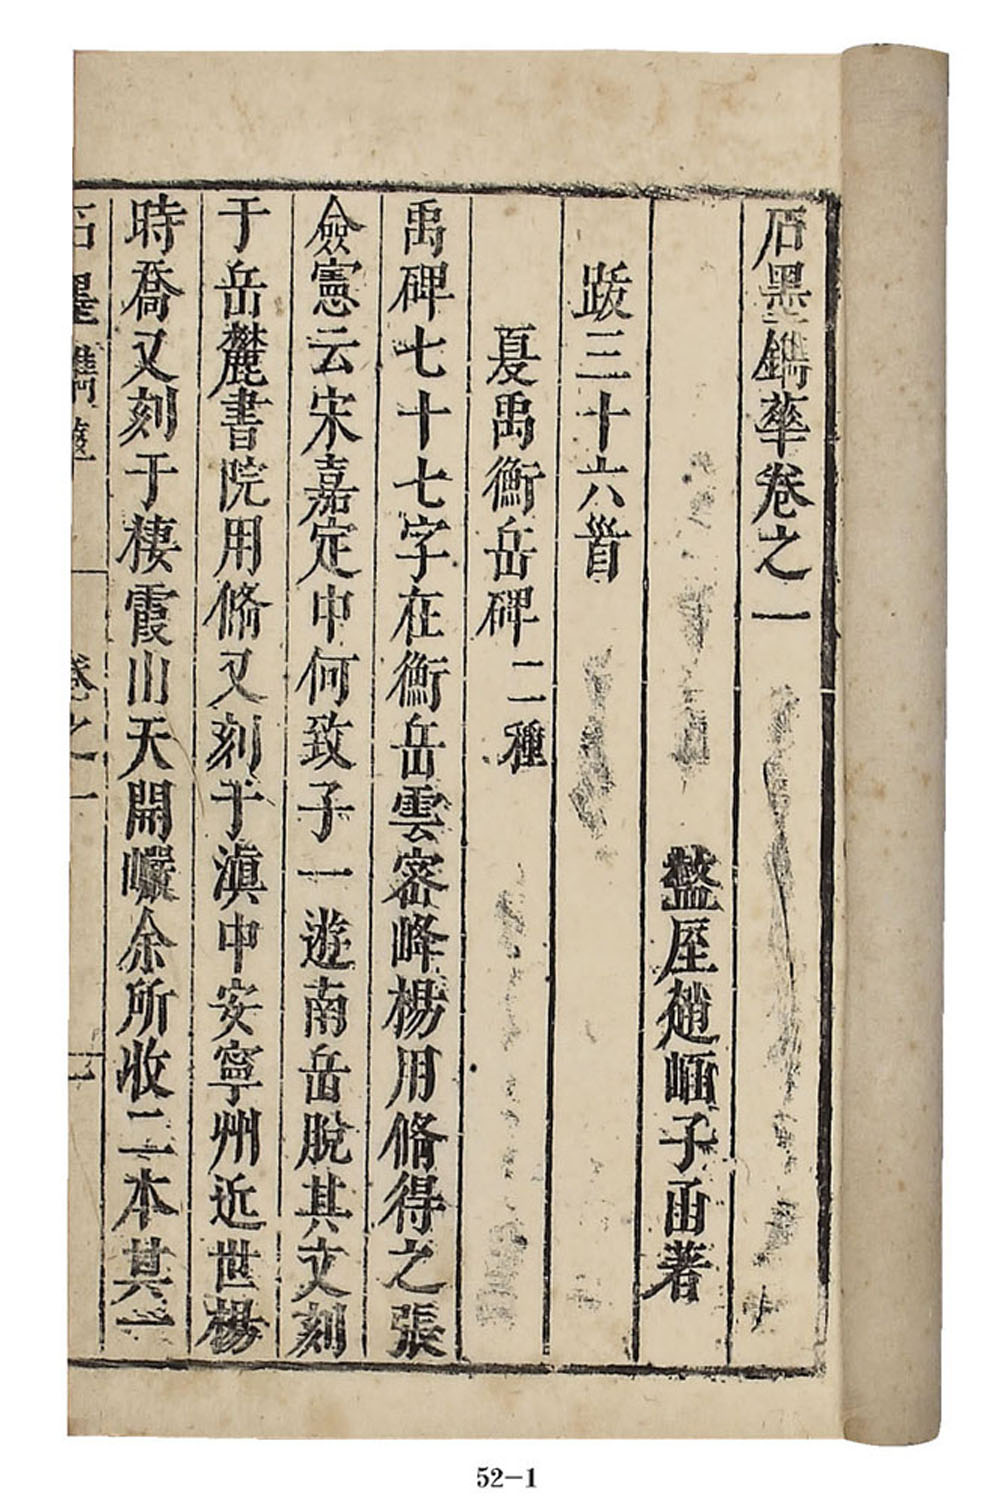 石墨鐫華卷之一
盩厔趙崡子函著
跋三十六首
夏禹衡岳碑二種
禹碑七十七字在衡岳雲密峰楊用脩得之張
僉憲云宋嘉定中何致子一遊南岳脫其文刻
于岳麓書院用脩又刻于滇中安寧州近世楊
時喬又刻于棲霞山天開巖余所收二本其一
石墨鐫華 卷之一 一
52-1